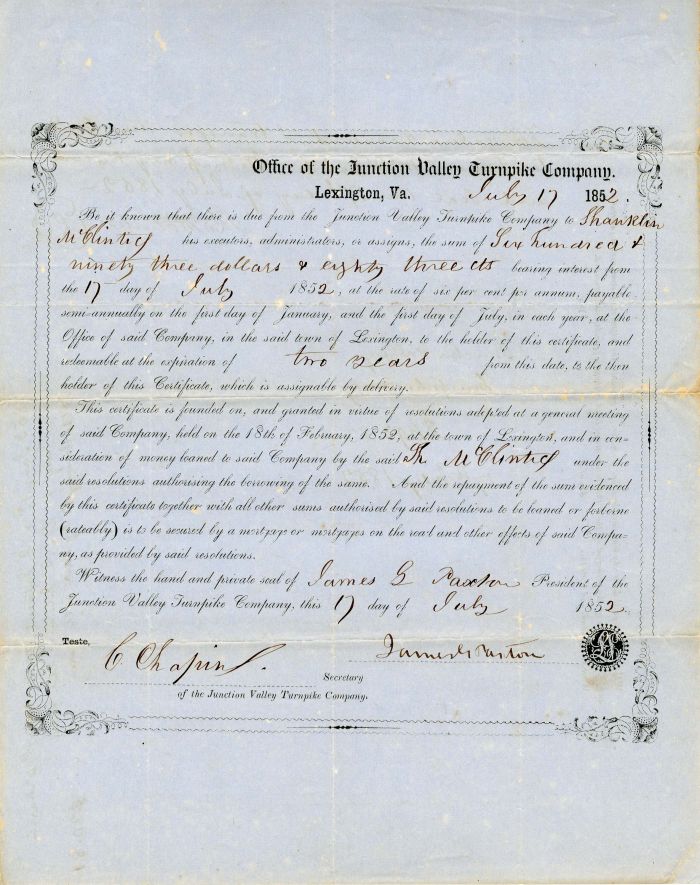 Office of the Junction Valley Turnpike Company.
Lexington, Va. July 17 1852.
Be it known that there is due from the Junction Valley Turnpike Company to Shanklin
McClintic his executors, administrators, or assigns, the sum of Six hundred &
ninety three dollars & eighty three cts bearing interest from
the 17 day of July 1852, at the rate of six per cent per annum, payable
semi-annually on the first day of January, and the first day of July, in each year, at the
Office of said Company, in the said town of Lexington, to the holder of this certificate, and
redeemable at the expiration of two years from this date, to the then
holder of this Certificate, which is assignable by delivery.
This certificate is founded on, and granted in virtue of resolutions adopted at a general meeting
of said Company, held on the 18th of February, 1852, at the town of Lexington, and in con-
sideration of money loaned to said Company by the said Sh McClintic under the
said resolutions authorising the borrowing of the same. And the repayment of the sum evidenced
by this certificate together with all other sums authorised by said resolutions to be loaned or forborne
(rateably) is to be secured by a mortgage or mortgages on the road and other effects of said Compa-
ny, as provided by said resolutions.
Witness the hand and private seal of James G Paxton President of the
Junction Valley Turnpike Company, this 17 day of July 1852.
Teste,
C. Chapin James G Paxton
Secretary
of the Junction Valley Turnpike Company.